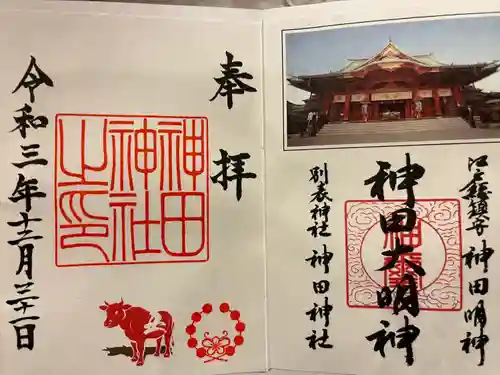 江戸総鎮守 神田明神
神田大明神
別表神社 神田神社
奉拝
神田
神社
之印
令和三年十二月三十一日